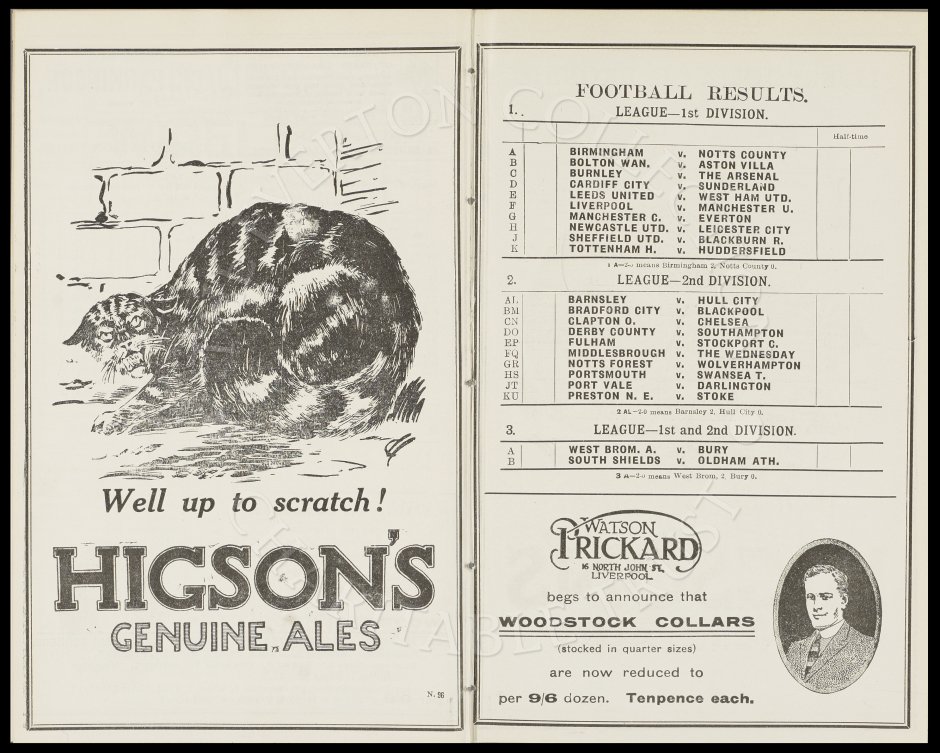 Well up to scratch!
HIGSON'S
GENUINE ALES
N. 96
FOOTBALL RESULTS.
1. LEAGUE—1st DIVISION.
Half-time
A BIRMINGHAM v. NOTTS COUNTY
B BOLTON WAN. v. ASTON VILLA
C BURNLEY v. THE ARSENAL
D CARDIFF CITY v. SUNDERLAND
E LEEDS UNITED v. WEST HAM UTD.
F LIVERPOOL v. MANCHESTER U.
G MANCHESTER C. v. EVERTON
H NEWCASTLE UTD. v. LEICESTER CITY
J SHEFFIELD UTD. v. BLACKBURN R.
K TOTTENHAM H. v. HUDDERSFIELD
1 A—2-0 means Birmingham 2, Notts County 0.
2. LEAGUE—2nd DIVISION.
AL BARNSLEY v. HULL CITY
BM BRADFORD CITY v. BLACKPOOL
CN CLAPTON O. v. CHELSEA
DO DERBY COUNTY v. SOUTHAMPTON
EP FULHAM v. STOCKPORT C.
FQ MIDDLESBROUGH v. THE WEDNESDAY
GR NOTTS FOREST v. WOLVERHAMPTON
HS PORTSMOUTH v. SWANSEA T.
JT PORT VALE v. DARLINGTON
KU PRESTON N. E. v. STOKE
2 AL—2-0 means Barnsley 2, Hull City 0.
3. LEAGUE—1st and 2nd DIVISION.
A WEST BROM. A. v. BURY
B SOUTH SHIELDS v. OLDHAM ATH.
3 A—2-0 means West Brom, 2, Bury 0.
WATSON
PRICKARD
16 NORTH JOHN ST.
LIVERPOOL
begs to announce that
WOODSTOCK COLLARS
(stocked in quarter sizes)
are now reduced to
per 9/6 dozen. Tenpence each.